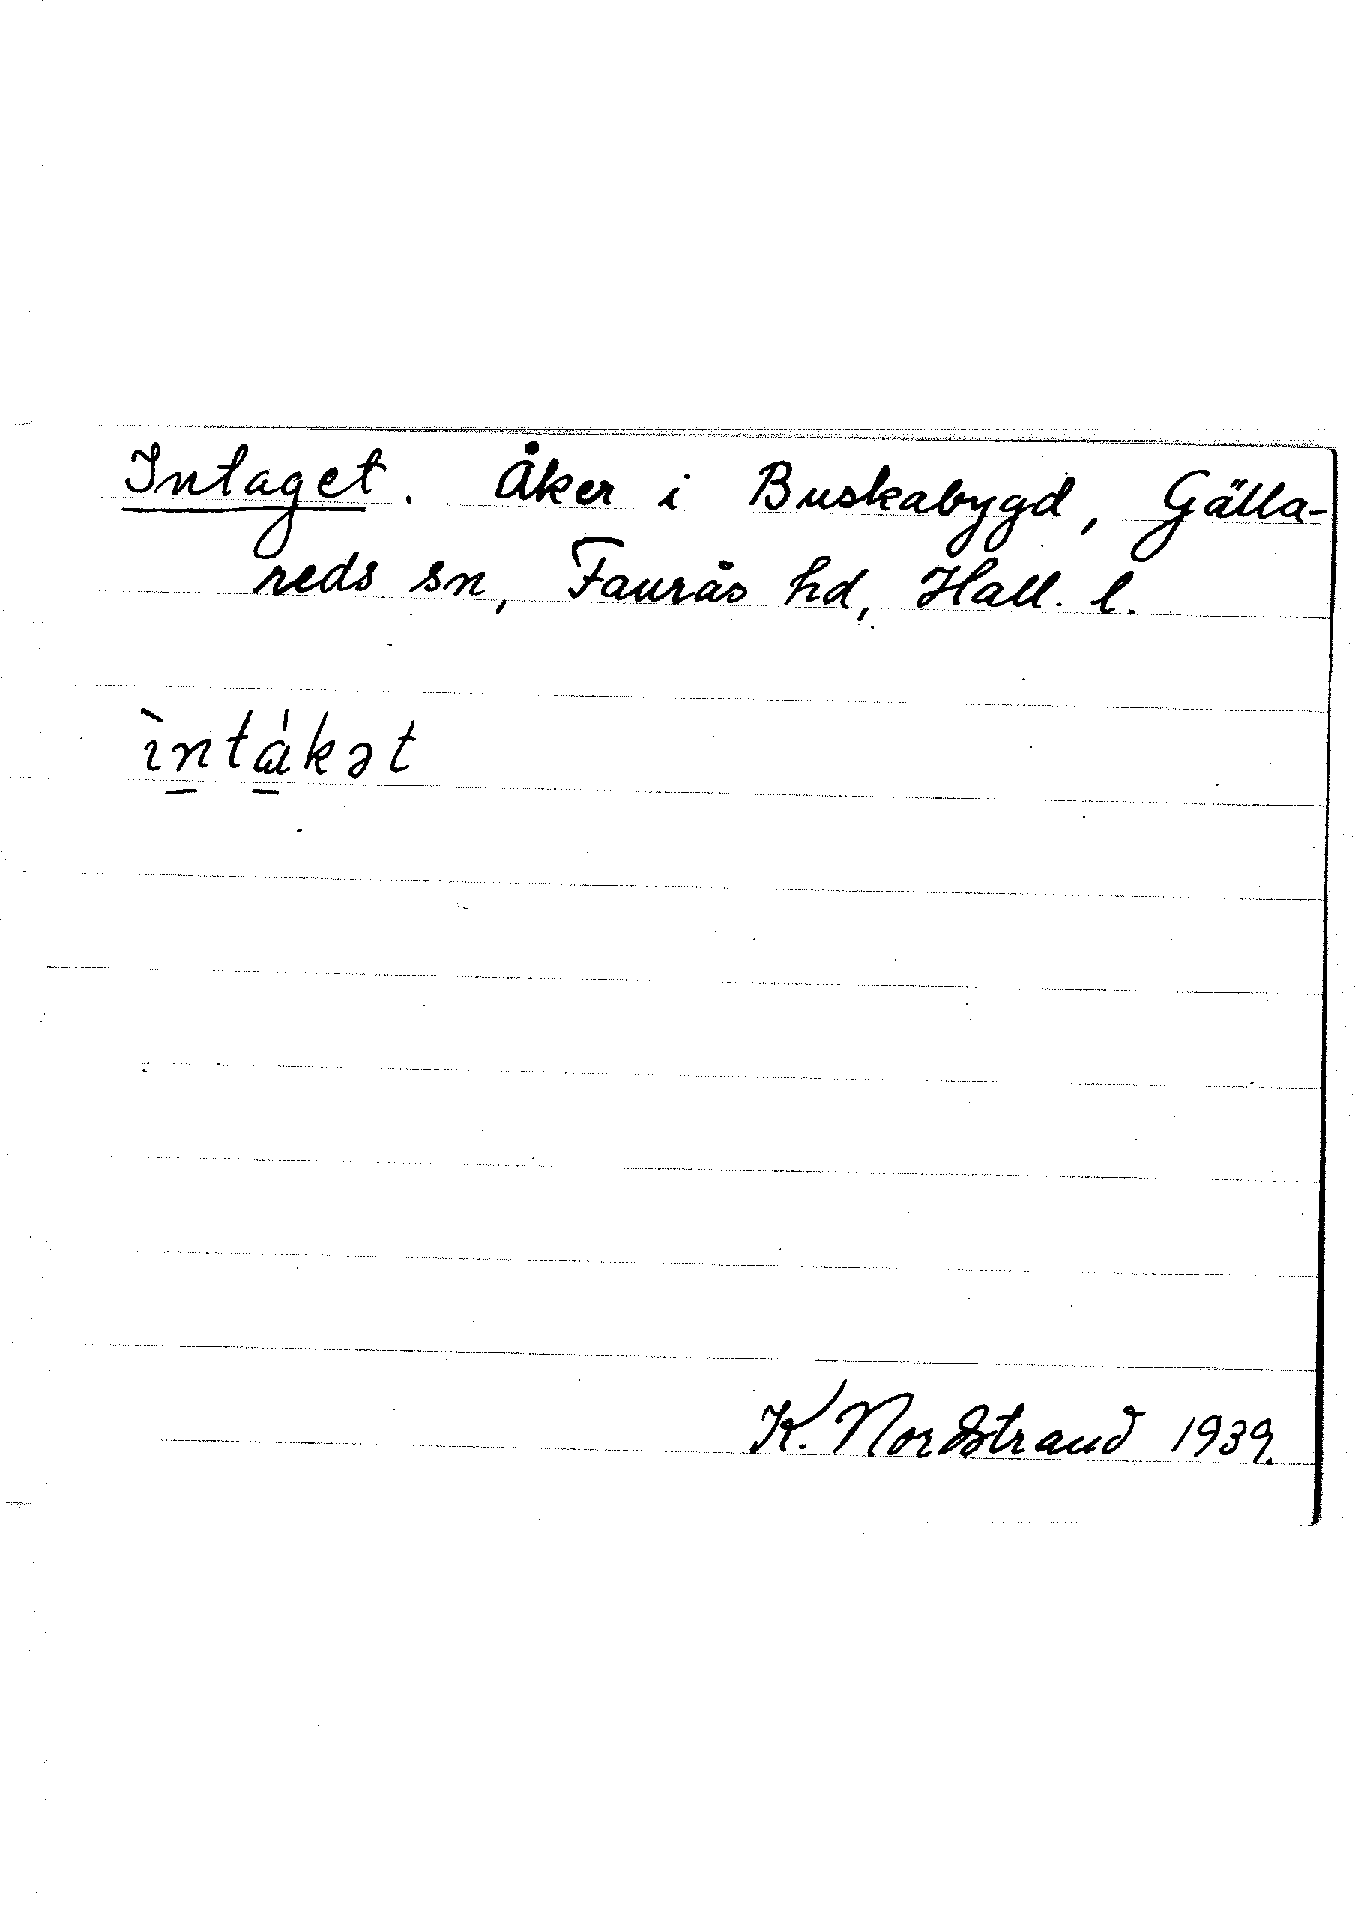 Intaget. Åker i Buskabygd, Gälla-
reds sn, Faurås hd, Hall. l.
ìntákət
K. Nordstrand 1939.